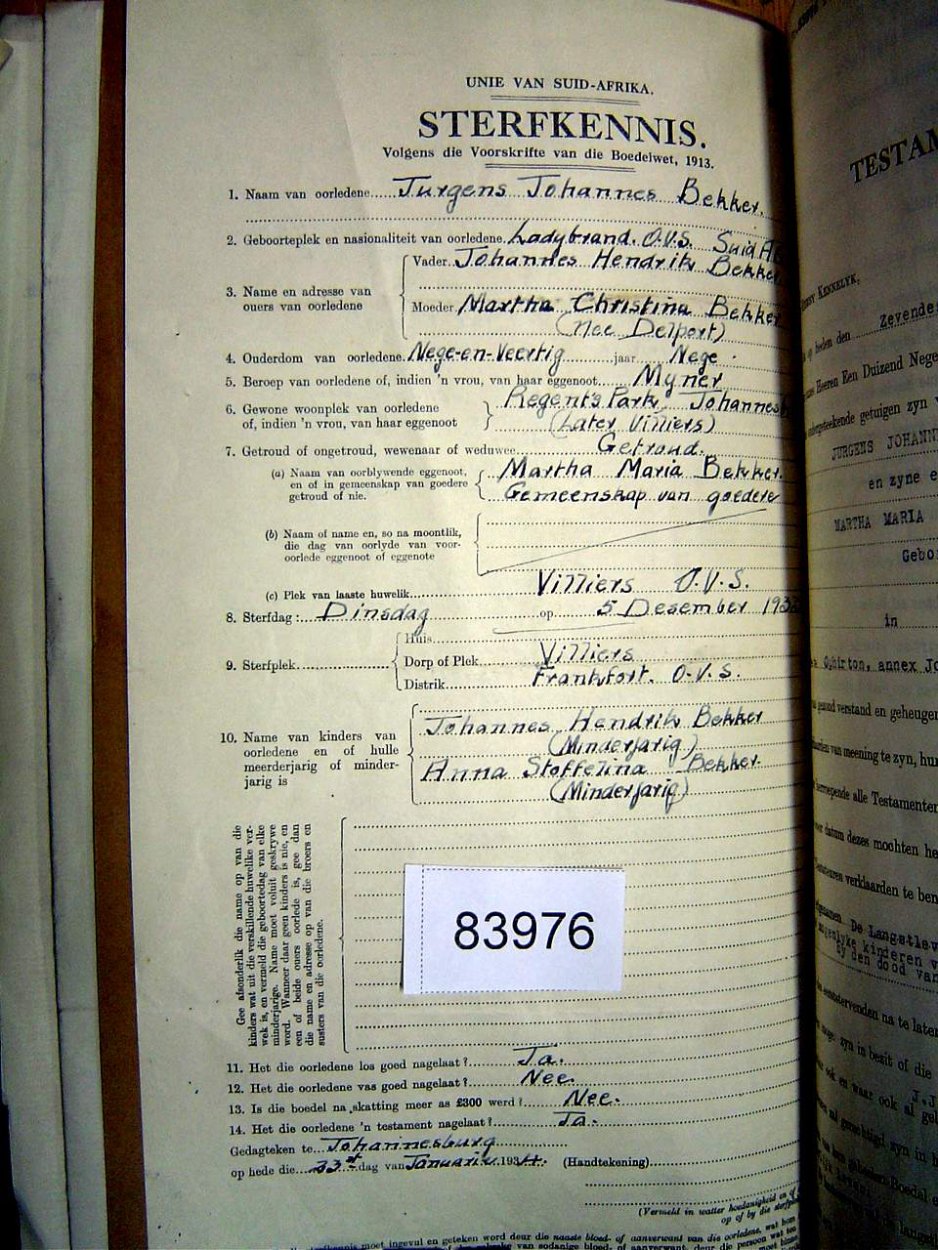 UNIE VAN SUID-AFRIKA.
STERFKENNIS.
Volgens die Voorskrifte van die Boedelwet, 1913.
1. Naam van oorledene Jurgens Johannes Bekker.
2. Geboorteplek en nasionaliteit van oorledene. Ladybrand. O.V.S. Suid
3. Name en adresse van ouers van oorledene
Vader. Johannes Hendrik Bekker
Moeder Martha Christina Bekker
(Nee Delport)
4. Ouderdom van oorledene. Nege-en-Veertig jaar Nege
5. Beroep van oorledene of, indien 'n vrou, van haar eggenoot Myner
6. Gewone woonplek van oorledene Regent's Park,
of, indien 'n vrou, van haar eggenoot (Later Villiers)
7. Getroud of ongetroud, wewenaar of weduwee Getroud.
(a) Naam van oorblywende eggenoot, Martha Maria Bekker.
en of in gemeenskap van goedere Gemeenskap van goedere
getroud of nie.
(b) Naam of name en, so na moontlik,
die dag van oorlyde van voor-
oorlede eggenoot of eggenote
(c) Plek van laaste huwelik Villiers O.V.S.
8. Sterfdag: Dinsdag op 5 Desember
9. Sterfplek
Huis
Dorp of Plek Villiers
Distrik Frankfort. O.V.S.
10. Name van kinders van
oorledene en of hulle
meerderjarig of minder-
jarig is
Johannes Hendrik Bekker
(Minderjarig)
Anna Stoffelina Bekker.
(Minderjarig)
Gee afsonderlik die name op van die
kinders wat uit die verskillende huwelike ver-
wek is, en vermeld die geboortedag van elke
minderjarige. Name moet voluit geskrywe
word. Wanneer daar geen kinders is nie, en
een of beide ouers oorlede is, gee dan
die name en adresse op van die broers en
susters van die oorledene.
83976
11. Het die oorledene los goed nagelaat? Ja.
12. Het die oorledene vas goed nagelaat? Nee.
13. Is die boedel na skatting meer as £300 werd? Nee.
14. Het die oorledene 'n testament nagelaat? Ja.
Gedagteken te Johannesburg
op hede die 23st dag van Januarie 1934. (Handtekening)
(Vermeld in watter hoedanigheid en of
op of by die
TESTAM
KENNELYK,
heden den Zevende
Heeren Een Duizend Nege
getuigen zyn
JURGENS JOHANN
en zyne e
MARTHA MARIA
Gebo
in
Ophirton, annex Jo
verstand en geheugen
van meening te zyn, hun
alle Testamenten
datum dezes mochten he
verklaarden te ben
De Langstlev
kinderen v
by den dood van
na te laten
zyn in besit of die
en waar ook al gel
J.J